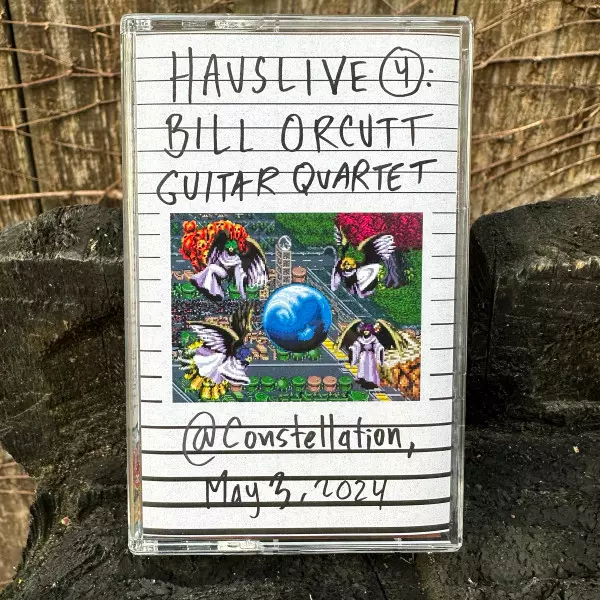 HAUSLIVE 4:
BILL ORCUTT
GUITAR QUARTET
@Constellation,
May 3, 2024